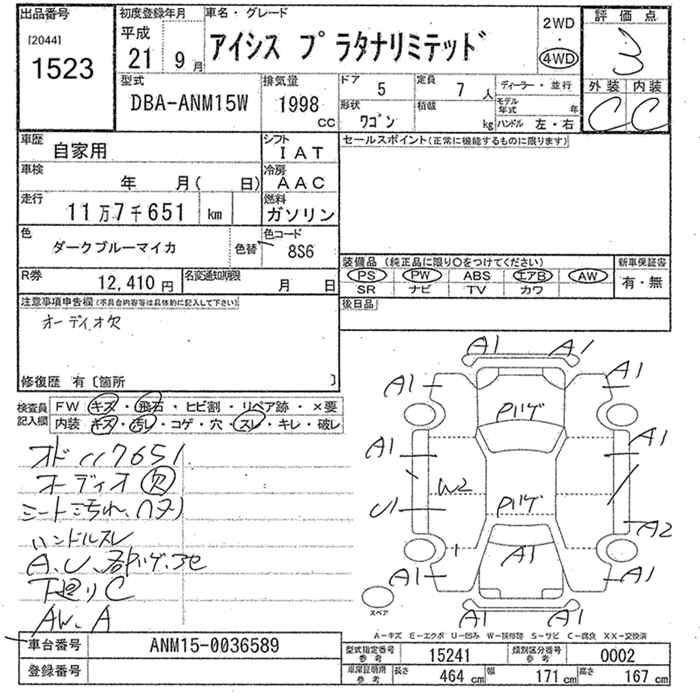 出品番号 初度登録年月 車名・グレード 2WD 評価点
[2044] 平成 アイシス プラタナリミテッド ・ 3
1523 21 9月 4WD
型式 排気量 ドア 5 定員 7人 ディーラー・並行 外装 内装
DBA-ANM15W 1998cc 形状 ワゴン 積載 kg モデル年式 年 C C
ハンドル 左・右
車歴 自家用 シフト IAT セールスポイント(正常に機能するものに限ります)
車検 年 月( 日) 冷房 AAC
走行 11万7千651 km 燃料 ガソリン
色 ダークブルーマイカ 色替 色コード 8S6
装備品(純正品に限り○をつけてください) 新車保証書
R券 12,410円 名変通知期限 月 日 PS PW ABS エアB AW 有・無
SR ナビ TV カワ
注意事項申告欄(不具合内容等は具体的に記入して下さい) 後日品
オーディオ欠
修復歴 有〔箇所 〕
検査員記入欄 FW キズ・飛石・ヒビ割・リペア跡・×要
内装 キズ・汚レ・コゲ・穴・スレ・キレ・破レ
オド117651
オーディオ欠
シート汚れ、
ハンドルスレ
A.U、
下廻りC
AW.A
A1 A1
A1 A1
Pハゲ
A1 A1
W2
U1 Pハゲ A2
A1
A1 A1
スペア
A1 A1
A-キズ E-エクボ U-凹み W-補修跡 S-サビ C-腐食 XX-交換済
車台番号 ANM15-0036589 型式指定番号 参考 15241 類別区分番号 参考 0002
登録番号 車庫証明用 参考 長さ 464cm 幅 171cm 高さ 167cm